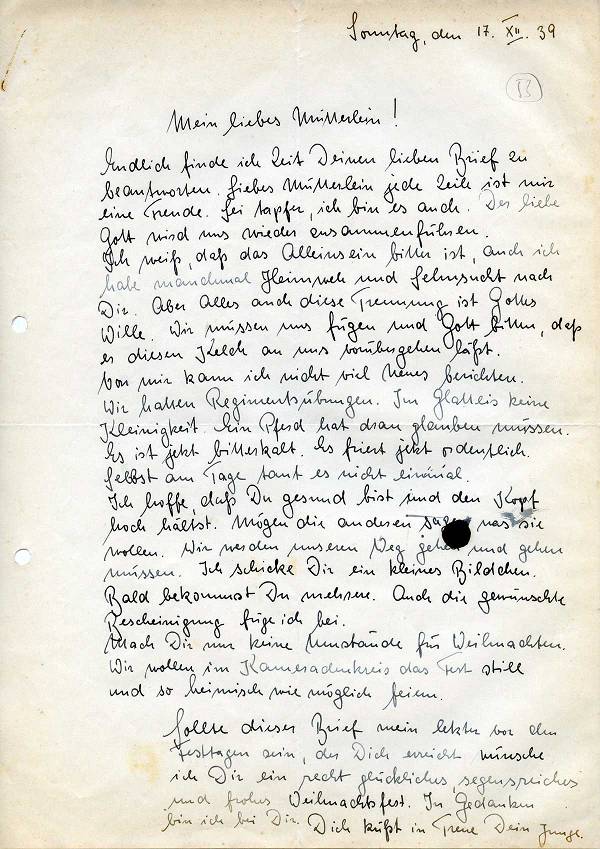 Sonntag, den 17. XII. 39
53
Mein liebes Mütterlein!
Endlich finde ich Zeit Deinen lieben Brief zu
beantworten. Liebes Mütterlein jede Zeile ist mir
eine Freude. Sei tapfer, ich bin es auch. Der liebe
Gott wird uns wieder zusammenführen.
Ich weiß, daß das Alleinsein bitter ist, auch ich
habe manchmal Heimweh und Sehnsucht nach
Dir. Aber Alles auch diese Trennung ist Gottes
Wille. Wir müssen uns fügen und Gott bitten, daß
er diesen Kelch an uns vorübergehen läßt.
Von mir kann ich nicht viel Neues berichten.
Wir hatten Regimentsübungen. Im Glatteis keine
Kleinigkeit. Ein Pferd hat dran glauben müssen.
Es ist jetzt bitterkalt. Es friert jetzt ordentlich.
Selbst am Tage taut es nicht einmal.
Ich hoffe, daß Du gesund bist und den Kopf
hoch hältst. Mögen die anderen was sie
wollen. Wir werden unseren Weg gehen und gehen
müssen. Ich schicke Dir ein kleines Bildchen.
Bald bekommst Du mehrere. Auch die gewünschte
Bescheinigung füge ich bei.
Mach Dir nur keine Umstände für Weihnachten.
Wir wollen im Kameradenkreis das Fest still
und so heimisch wie möglich feiern.
Sollte dieser Brief mein letzter vor den
Festtagen sein, der Dich erreicht wünsche
ich Dir ein recht glückliches, segensreiches
und frohes Weihnachtsfest. In Gedanken
bin ich bei Dir. Dich küßt in Treue Dein Junge.